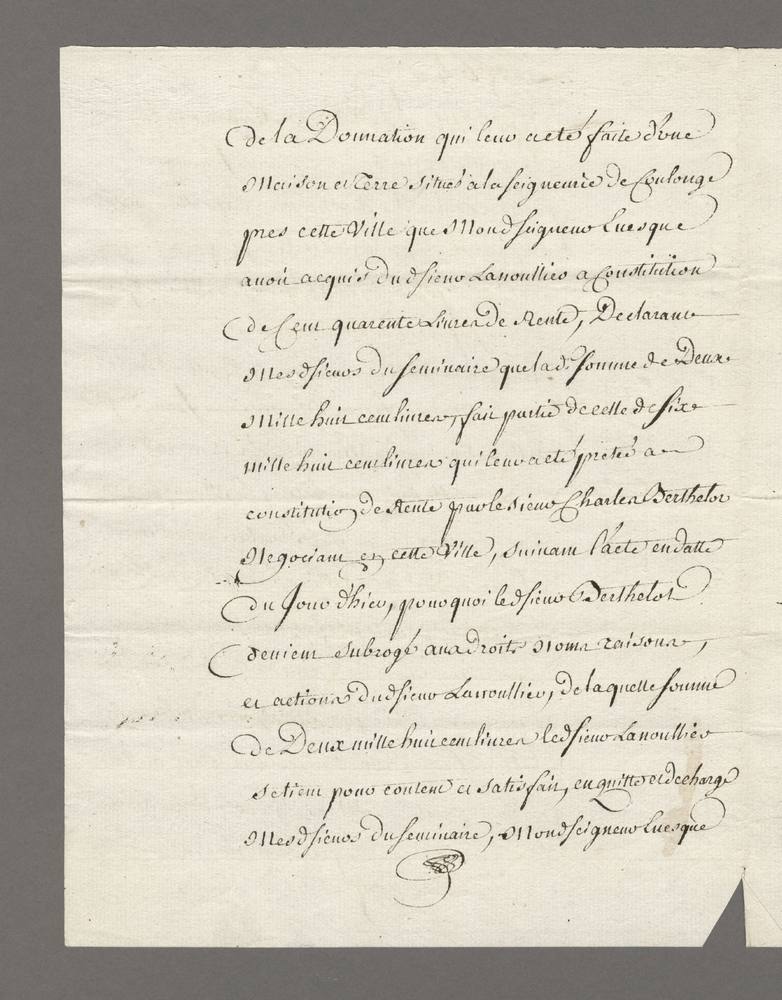 de la Donnation qui leur a eté faite d'une
Maison et Terre situés a la seigneurie de Coulonge
pres cette Ville que Mond Seigneur Euesque
auoit acquis dud sieur Lanoullier a Constitution
de Cent quarente Liures de Rente, Declarant
Mesd sieurs du seminaire que lad. somme de Deux
Mille huit cent liures, fait partie de celle de six
mille huit cent liures qui leur a eté preté a
constitutio de Rente par le sieur Charles Berthelot
Negociant en cette Ville, suiuant l'acte en datte
du Jour d'hier, pourquoi led sieur Berthelot
devient subrogé aux droits Noms raisons,
et actions dud sieur Lanoullier, de laquelle somme
de Deux mille huit cent liures led sieur Lanoullier
se tient pour content et satisfait, en quitte et decharge
Mesd sieurs du seminaire, Mond seigneur Euesque